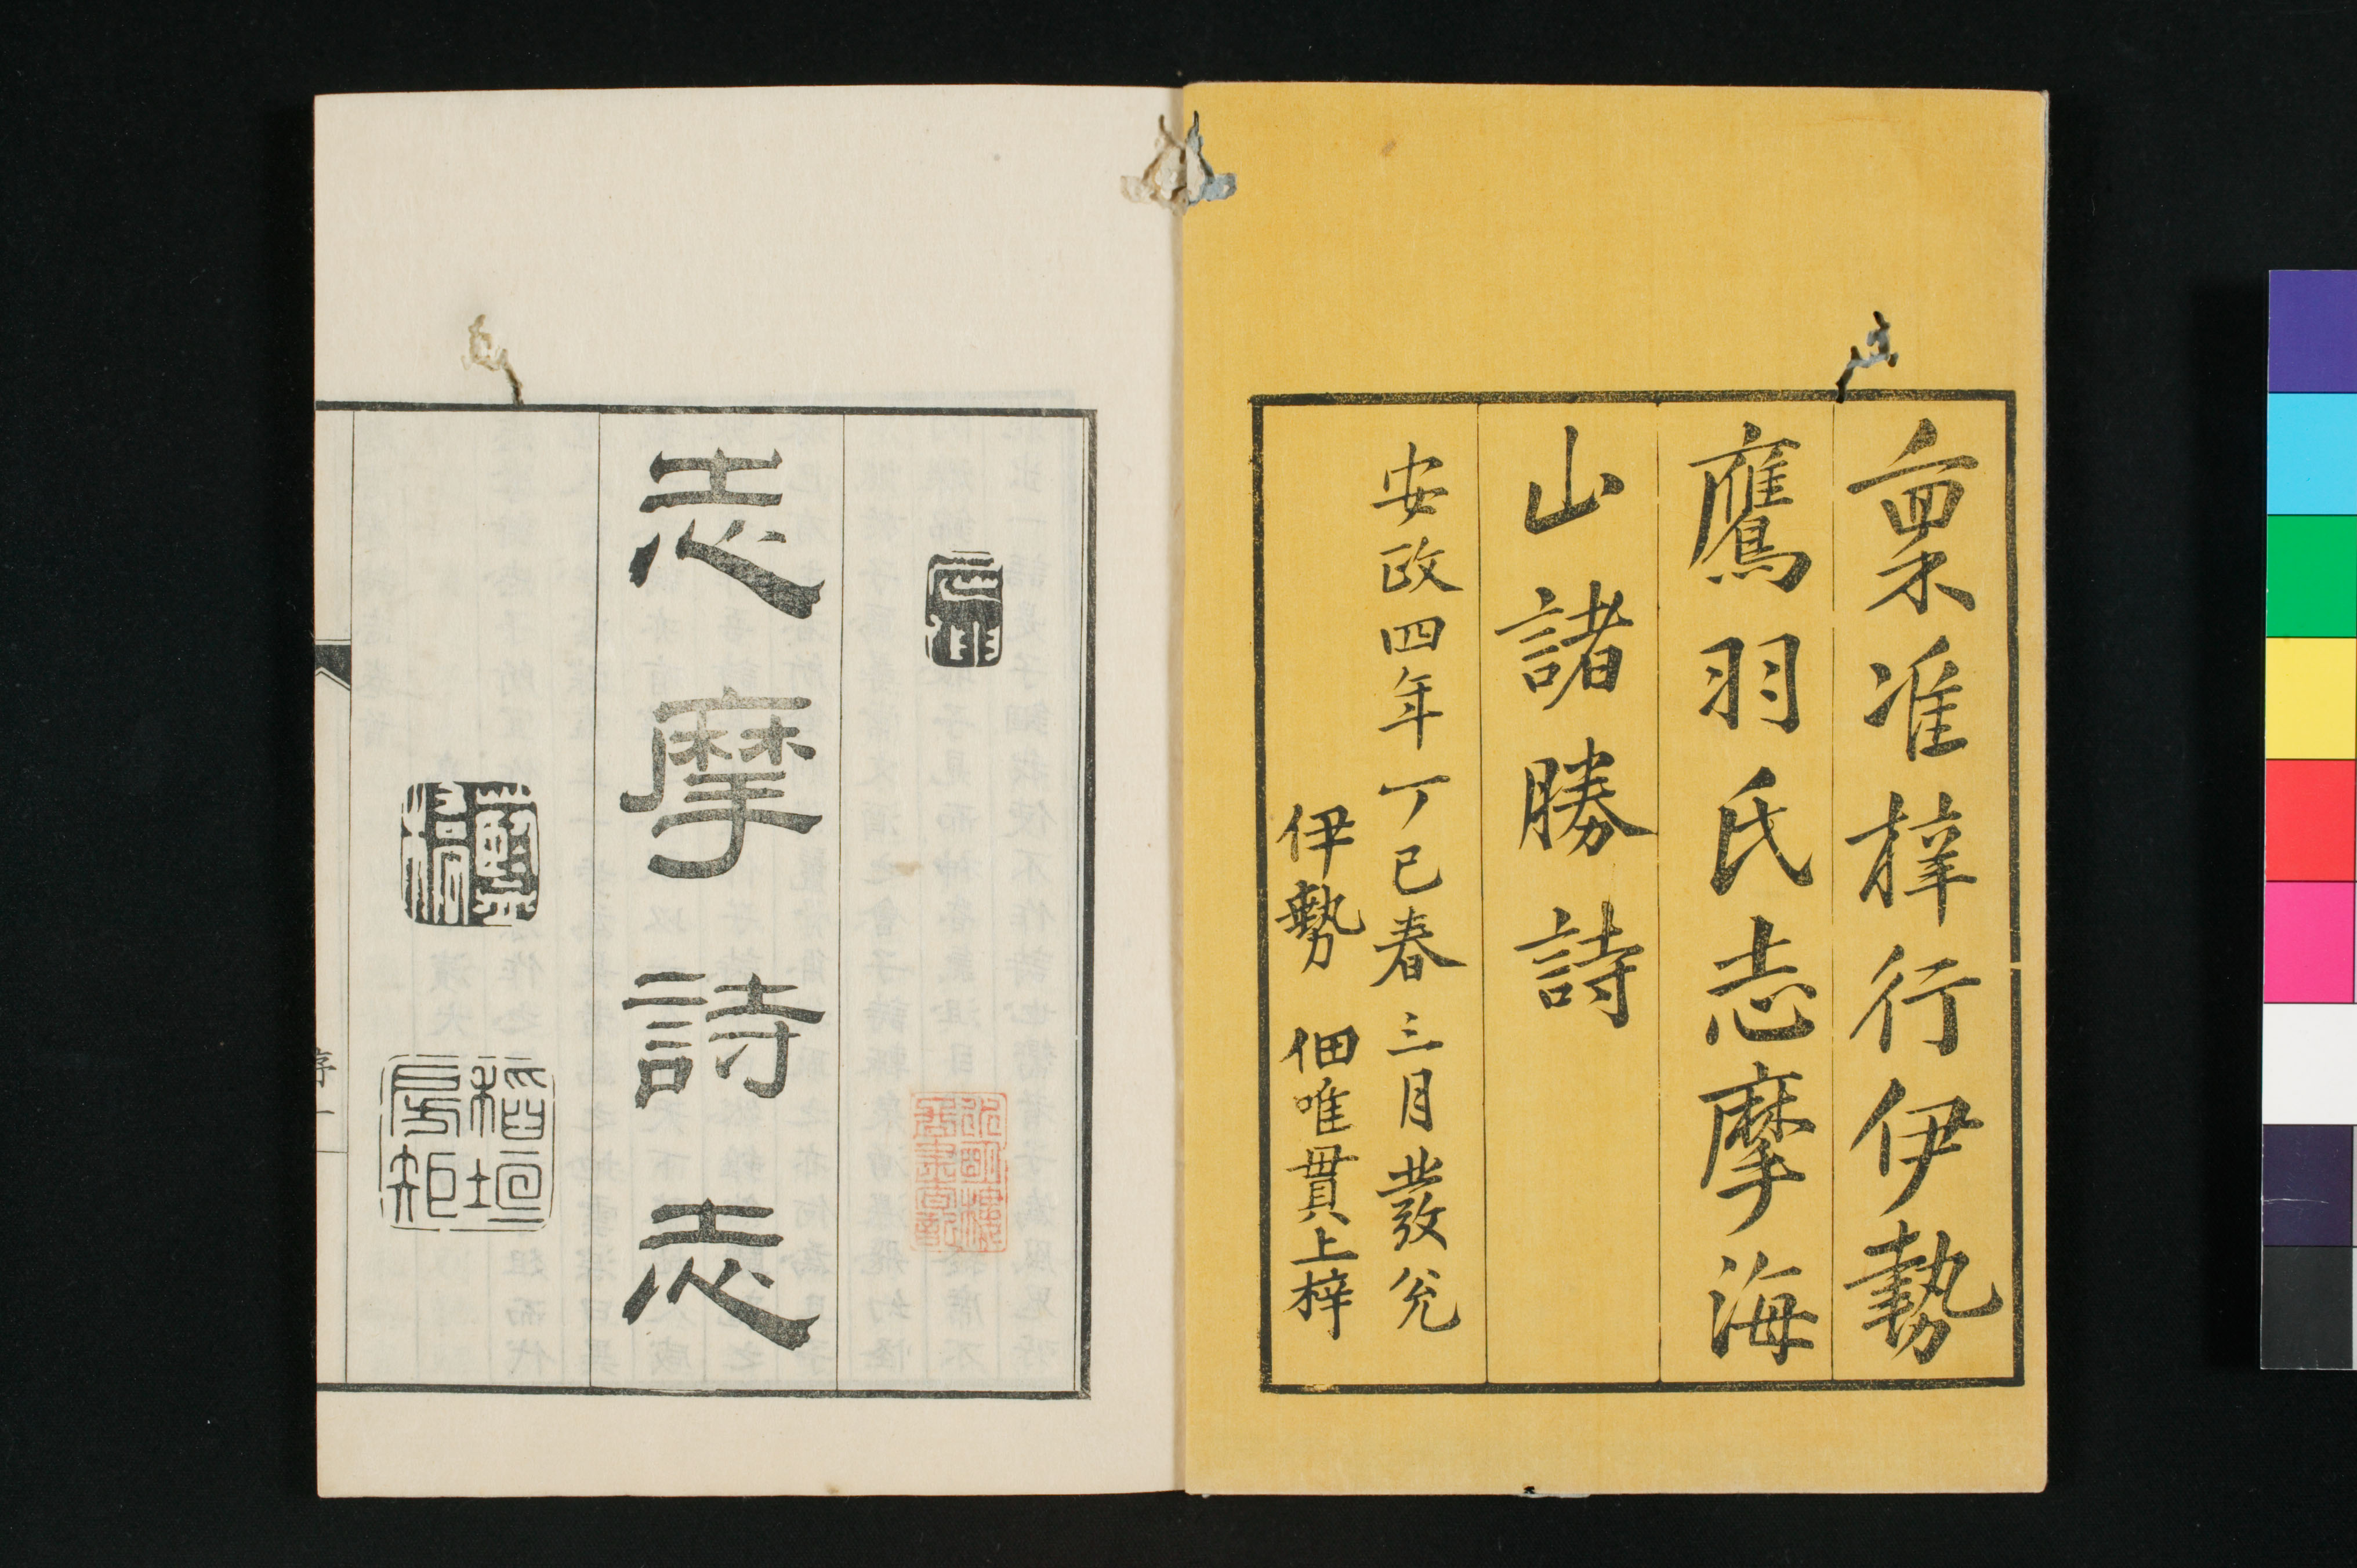 稟准梓行伊勢
鷹羽氏志摩海
山諸勝詩
安政四年丁巳春三月發兌
伊勢 佃唯貫上梓
志摩詩志
稲垣
序一